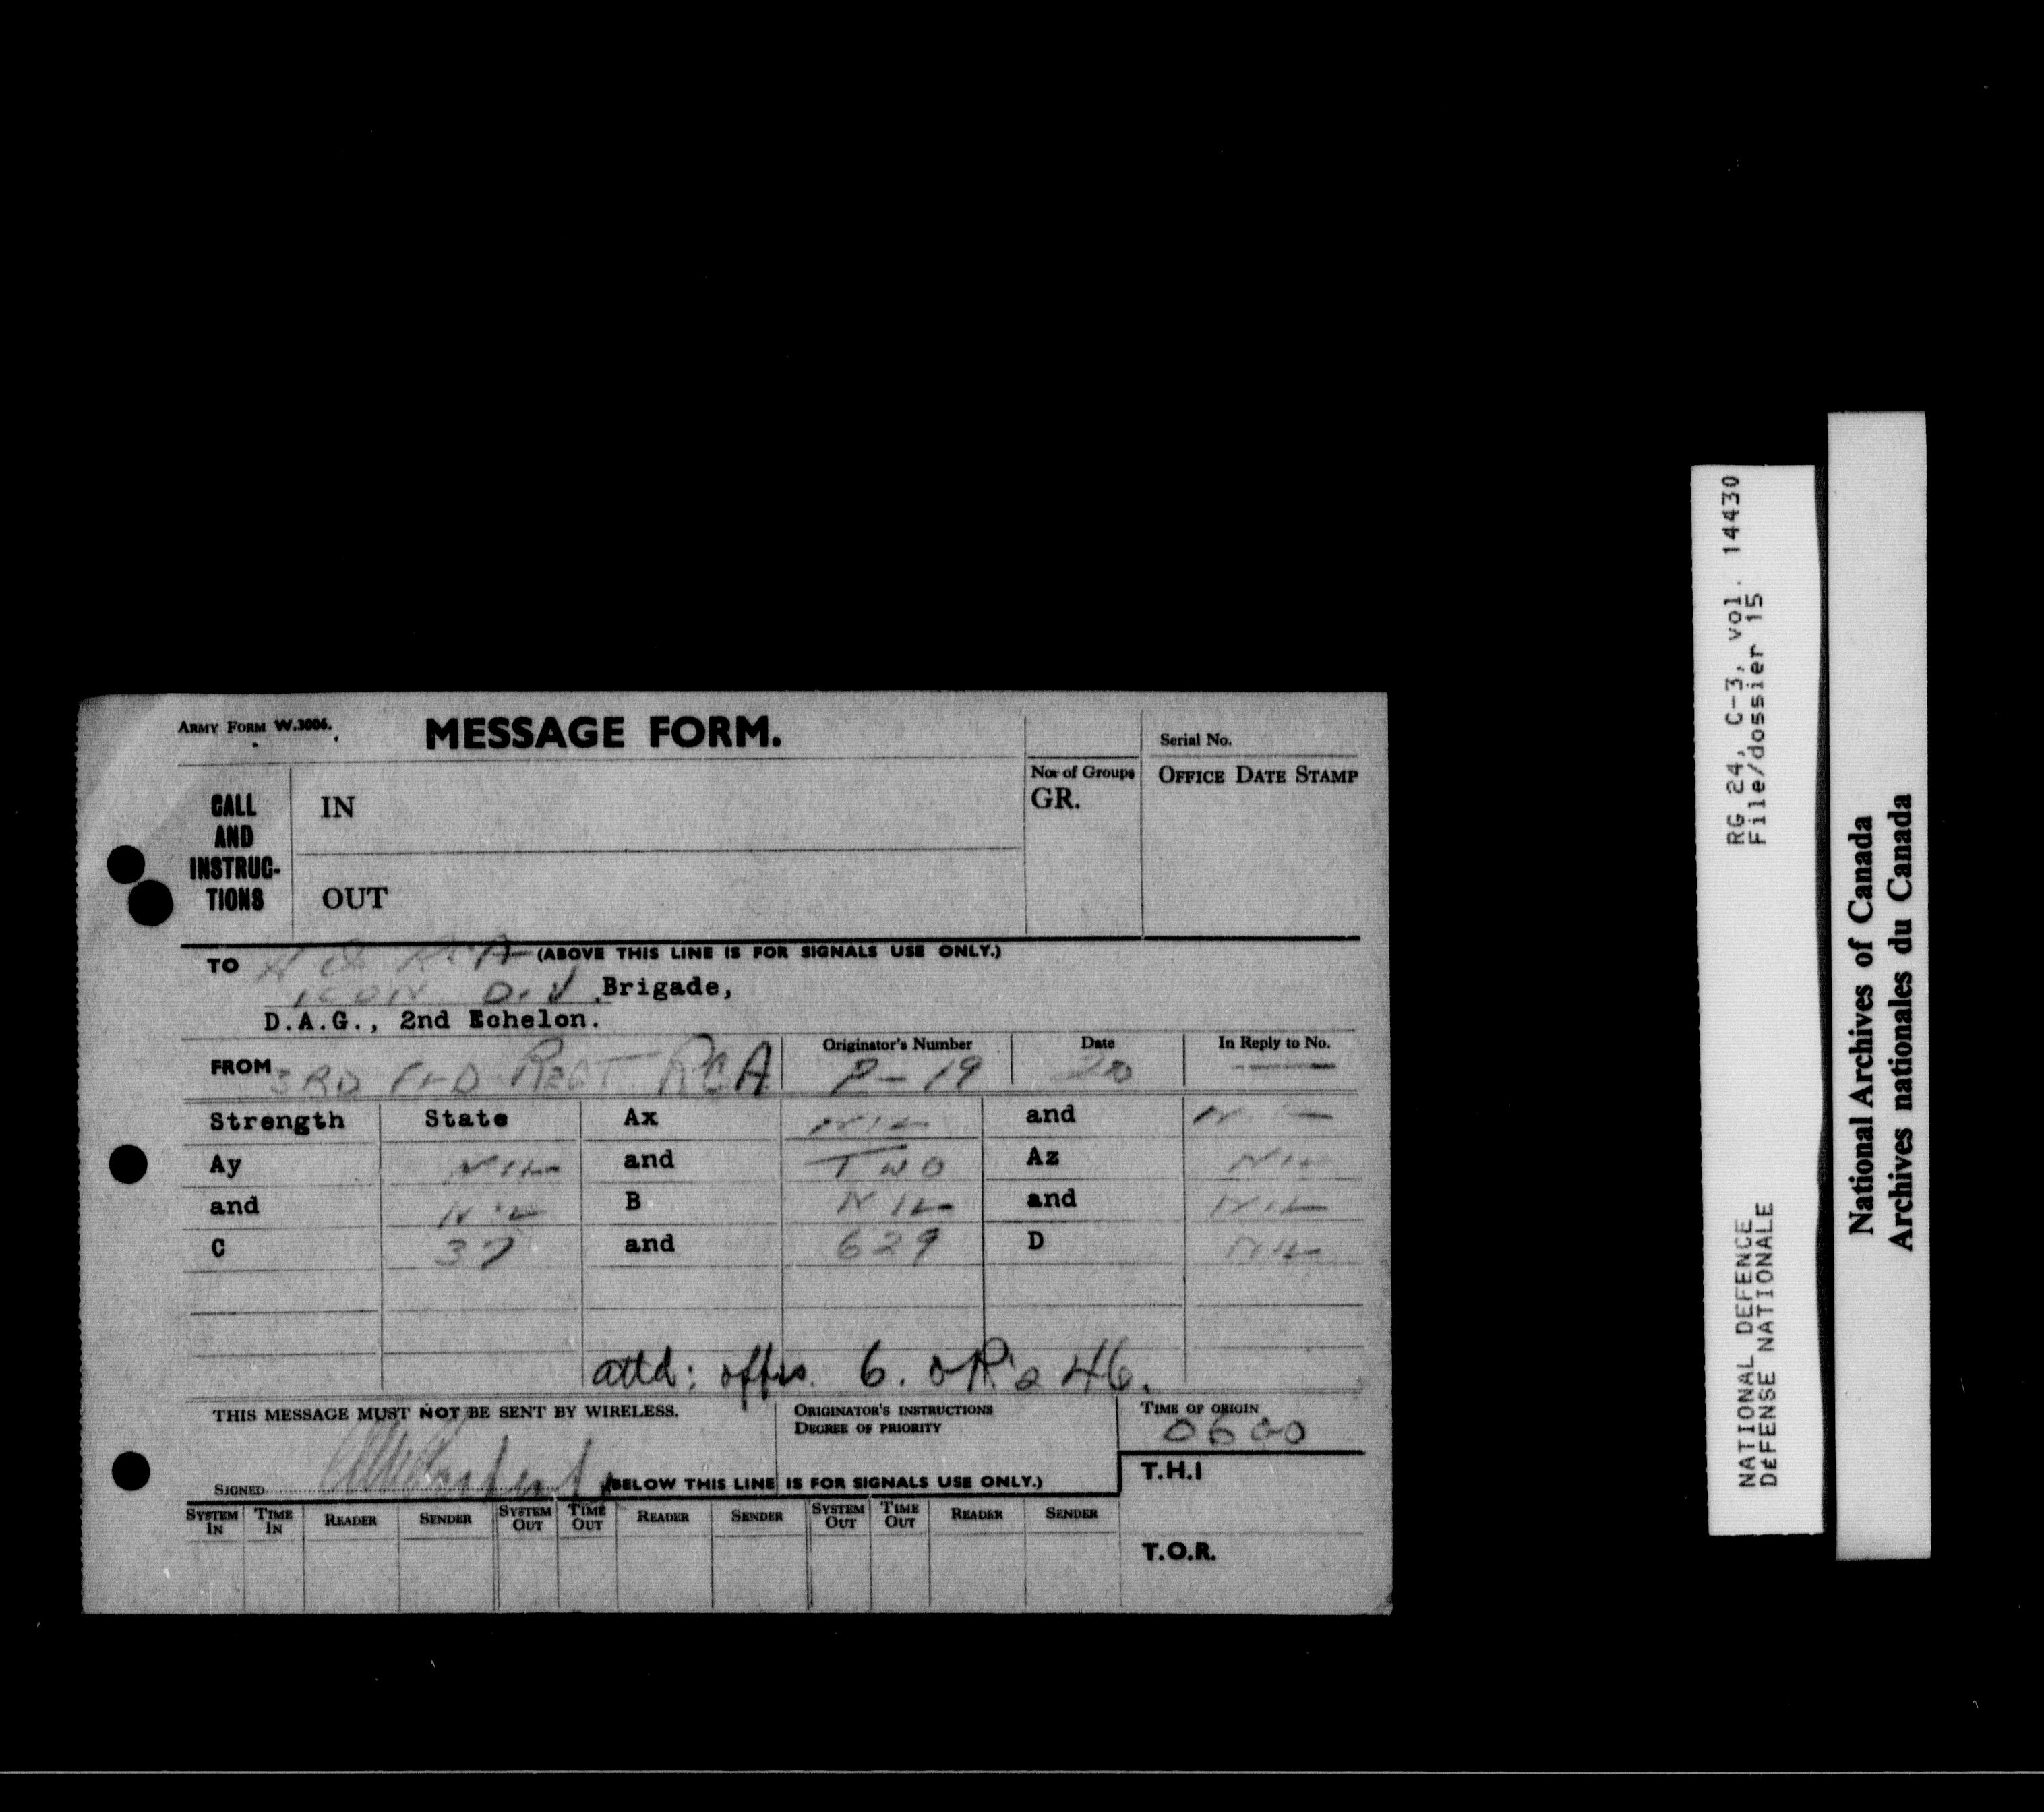 ARMY FORM W.3006.
MESSAGE FORM.
Serial No.
CALL AND INSTRUC-TIONS
IN
OUT
Nos of Groups
GR.
OFFICE DATE STAMP
(ABOVE THIS LINE IS FOR SIGNALS USE ONLY.)
TO H Q RCA
1 CDN DIV. Brigade,
D.A.G., 2nd Echelon.
FROM 3RD FLD REGT RCA
Originator's Number P-19
Date 20
In Reply to No. —
Strength State Ax NIL and NIL
Ay NIL and TWO Az NIL
and NIL B NIL and NIL
C 37 and 629 D NIL
attd: offrs. 6. OR's 46.
THIS MESSAGE MUST NOT BE SENT BY WIRELESS.
ORIGINATOR'S INSTRUCTIONS
DEGREE OF PRIORITY
TIME OF ORIGIN
0600
SIGNED
(BELOW THIS LINE IS FOR SIGNALS USE ONLY.)
T.H.I
SYSTEM IN TIME IN READER SENDER SYSTEM OUT TIME OUT READER SENDER SYSTEM OUT TIME OUT READER SENDER
T.O.R.
RG 24, C-3, vol. 14430
File/dossier 15
NATIONAL DEFENCE
DÉFENSE NATIONALE
National Archives of Canada
Archives nationales du Canada